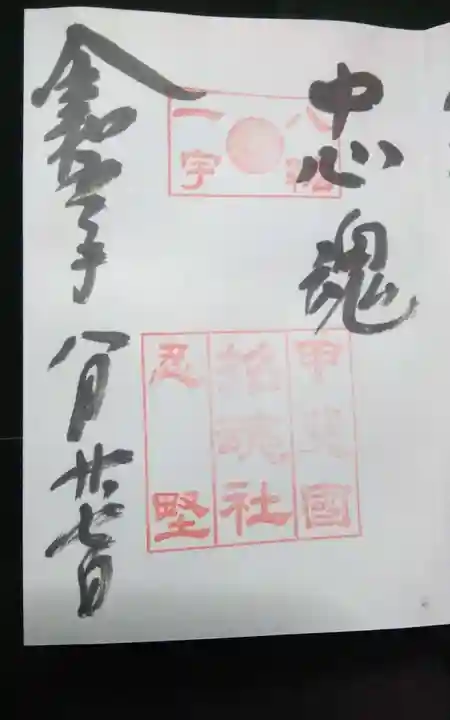 忠魂
八紘
一宇
甲斐國
招魂社
忍
令和
年
八月廿七日